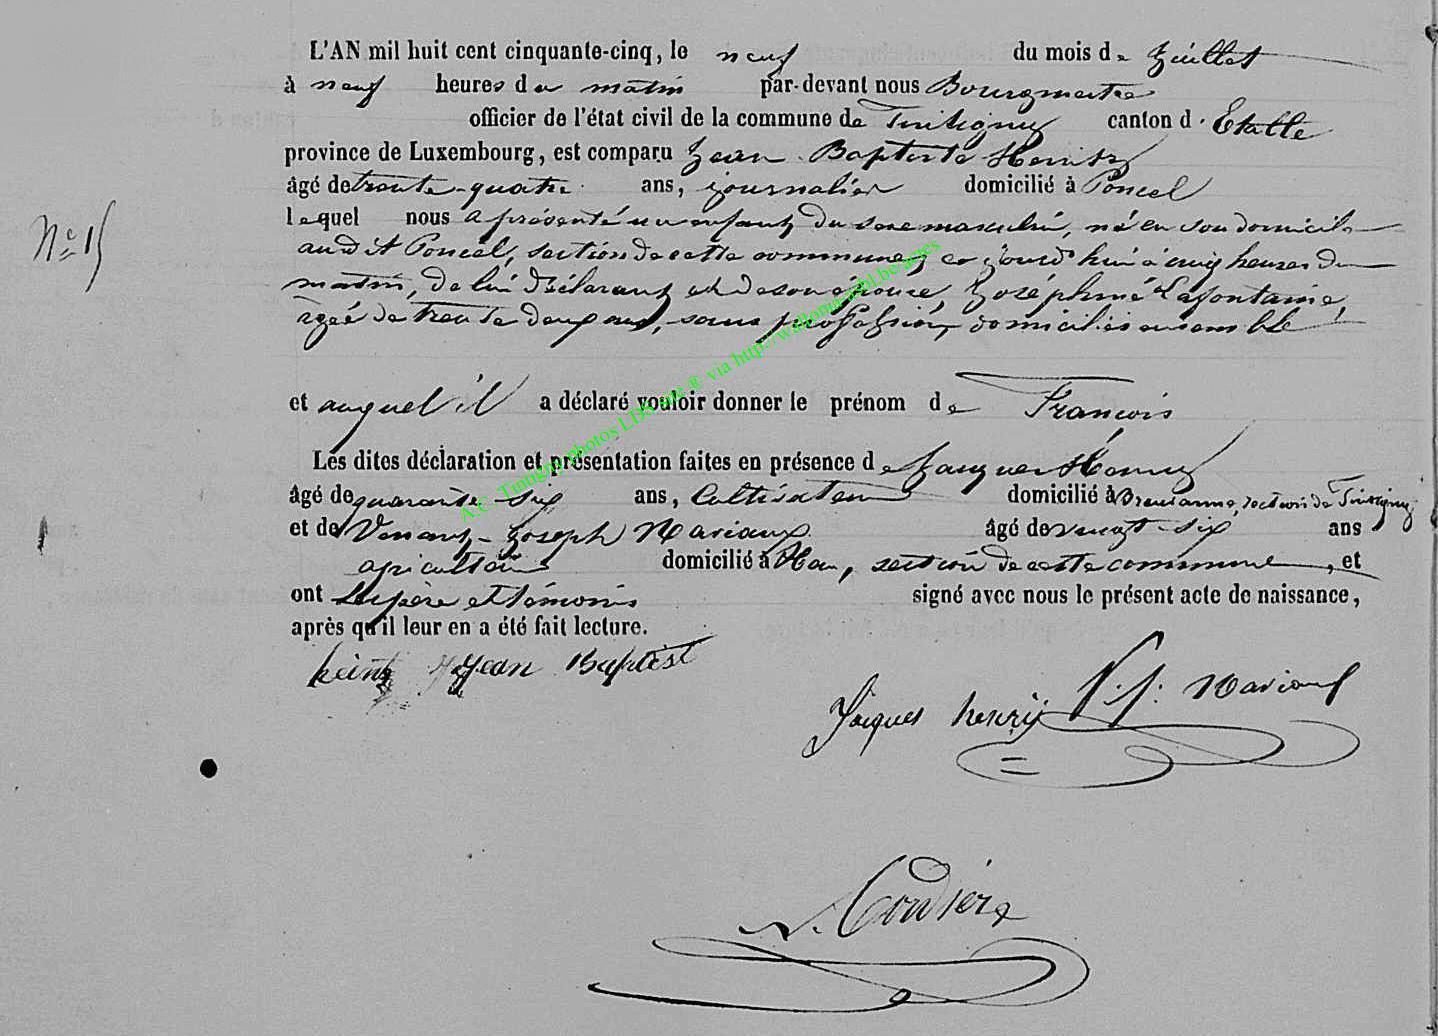 L'AN mil huit cent cinquante-cinq, le neuf du mois de Juillet
à neuf heures du matin par-devant nous Bourgmestre
officier de l'état civil de la commune de Tintigny canton d'Etalle
province de Luxembourg, est comparu Jean Baptiste Heintz
âgé de trente-quatre ans, journalier domicilié à Poncel
lequel nous a présenté un enfant du sexe masculin, né en son domicile
audit Poncel, section de cette commune, ce jourd'hui à cinq heures du
matin, de lui déclarant et de son épouse, Joséphine Lafontaine,
âgée de trente deux ans, sans profession, domiciliés ensemble
et auquel il a déclaré vouloir donner le prénom de François
Les dites déclaration et présentation faites en présence de Jacques Henry
Nº 15
âgé de quarante-six ans, Cultivateur domicilié à Breuvanne, section de Tintigny
et de Venant-Joseph Mariaux âgé de vingt-six ans
agriculteur domicilié à Han, section de cette commune, et
ont le père et témoins signé avec nous le présent acte de naissance,
après qu'il leur en a été fait lecture.
heintz Jean Baptist
Jacques henry V. J. Mariaux
Cordier
A.C. Tintigny photos LDS site ® via http://wallonia-asbl.be/actes